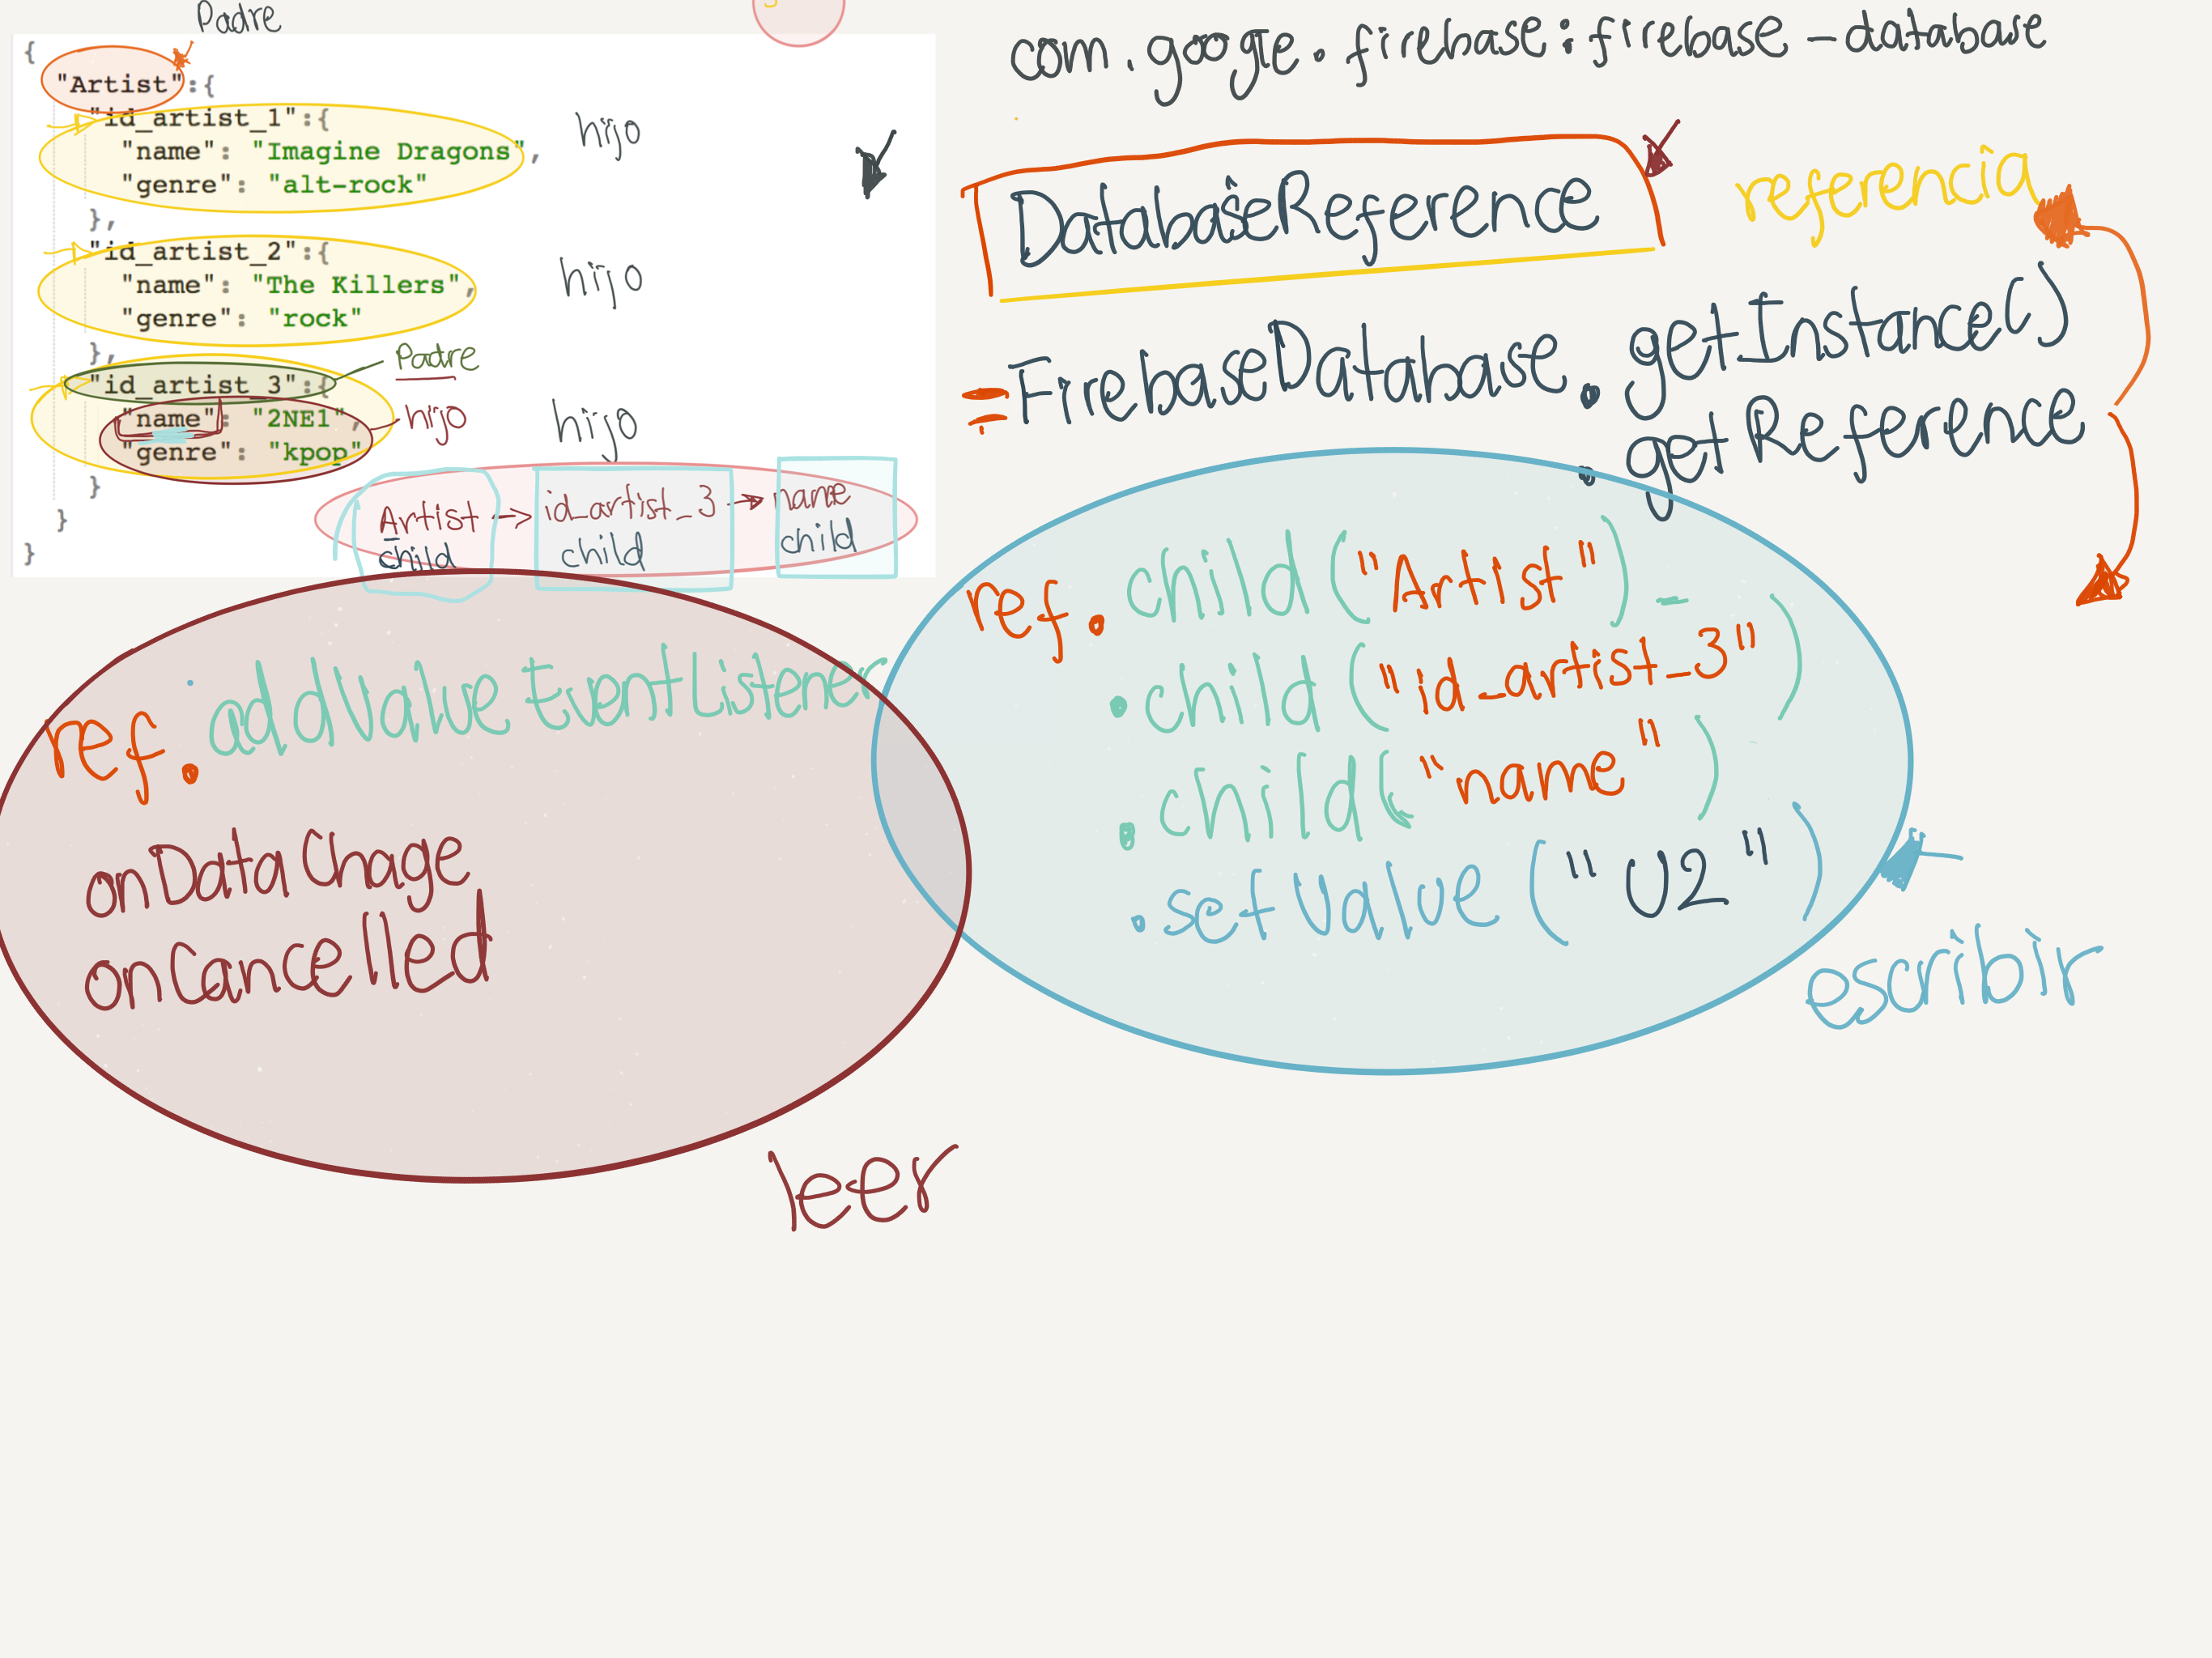 Padre
{
"Artist":{
"id_artist_1":{
"name": "Imagine Dragons",
"genre": "alt-rock"
},
hijo
"id_artist_2":{
"name": "The Killers",
"genre": "rock"
},
hijo
Padre
"id_artist_3":{
"name": "2NE1",
"genre": "kpop"
}
hijo
hijo
}
}
Artist → id_artist_3 → name
child child child
com.google.firebase:firebase-database
DatabaseReference
referencia
=FirebaseDatabase.getInstance()
.getReference
ref.child("Artist")
.child("id_artist_3")
.child("name")
.setValue("U2")
escribir
ref.addValueEventListener
onDataChage
onCancelled
leer